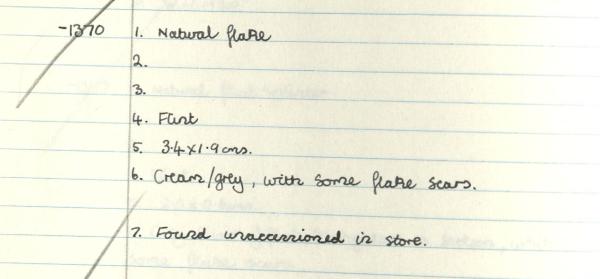 -1370 1. Natural flake
2.
3.
4. Flint
5. 3.4x1.9cms.
6. Cream/grey, with some flake scars.
7. Found unaccessioned in store.